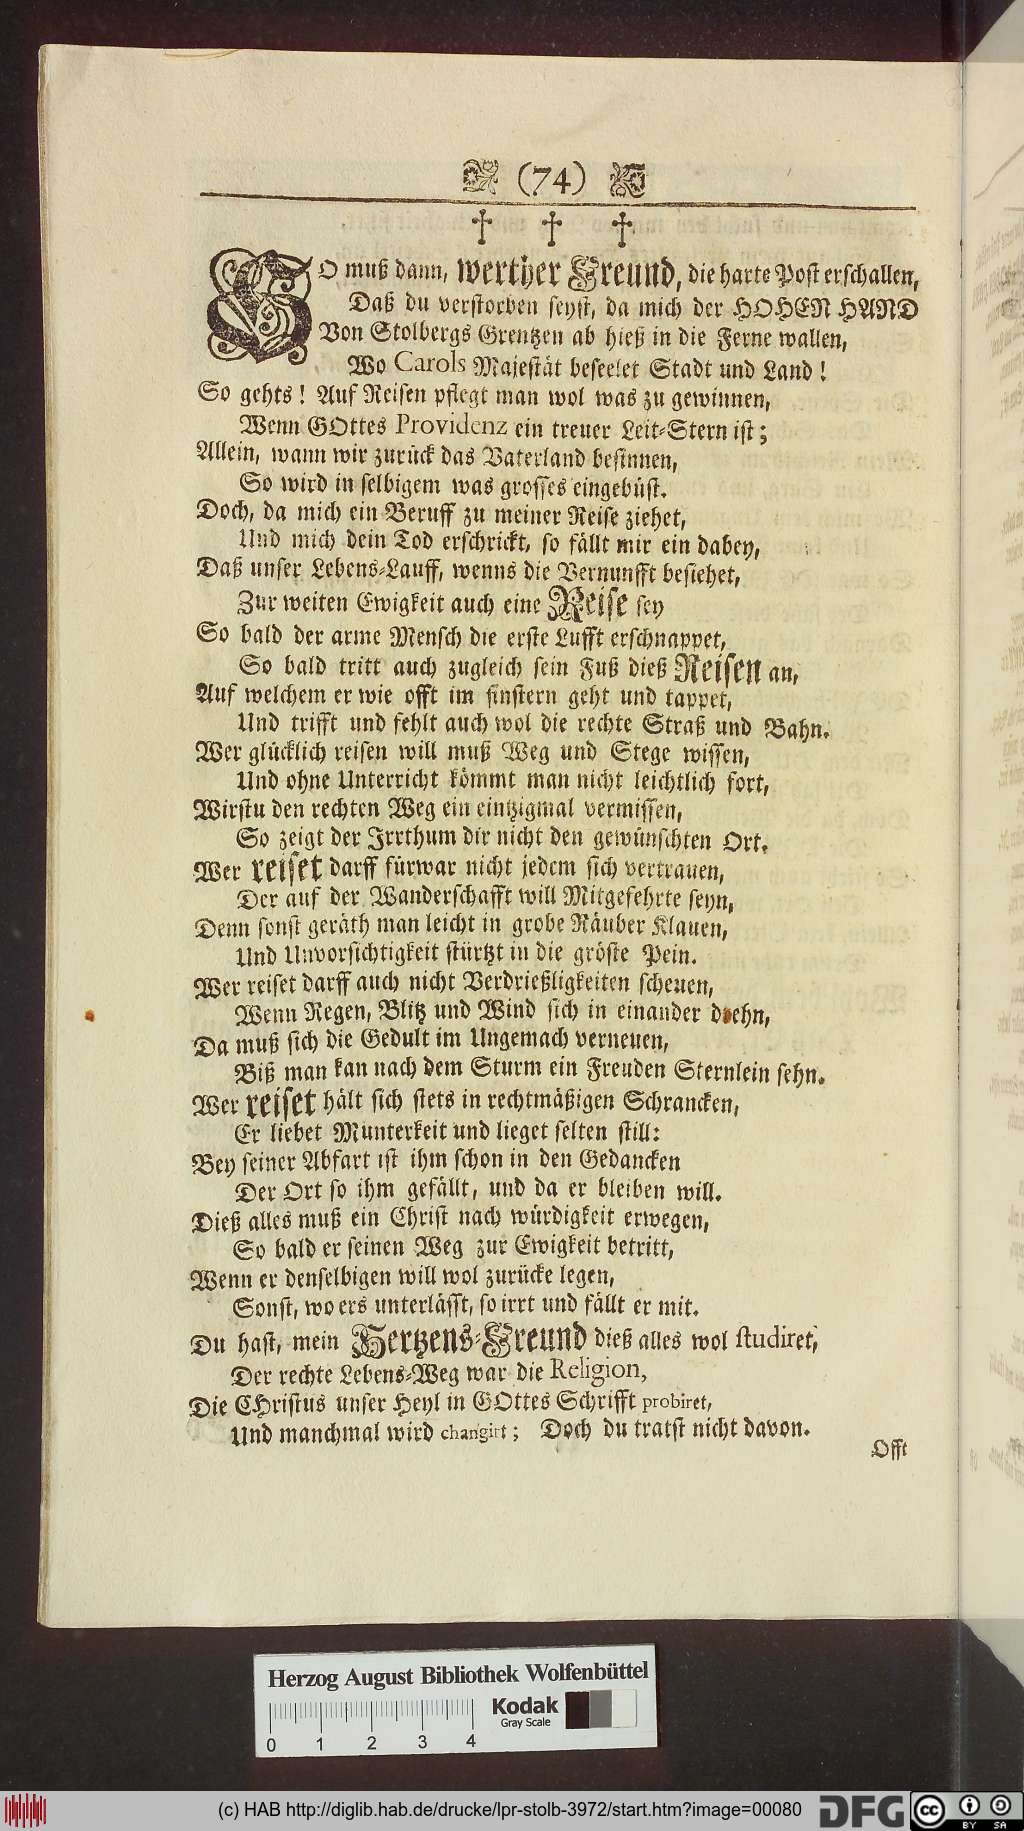 (74)
SO muß dann, werther Freund, die harte Post erschallen,
Daß du verstorben seyst, da mich der HOHEN HAND
Von Stolbergs Grentzen ab hieß in die Ferne wallen,
Wo Carols Majestät beseelet Stadt und Land!
So gehts! Auf Reisen pflegt man wol was zu gewinnen,
Wenn GOttes Providenz ein treuer Leit-Stern ist;
Allein, wann wir zurück das Vaterland besinnen,
So wird in selbigem was grosses eingebüst.
Doch, da mich ein Beruff zu meiner Reise ziehet,
Und mich dein Tod erschrickt, so fällt mir ein dabey,
Daß unser Lebens-Lauff, wenns die Vernunfft besiehet,
Zur weiten Ewigkeit auch eine Reise sey
So bald der arme Mensch die erste Lufft erschnappet,
So bald tritt auch zugleich sein Fuß dieß Reisen an,
Auf welchem er wie offt im finstern geht und tappet,
Und trifft und fehlt auch wol die rechte Straß und Bahn.
Wer glücklich reisen will muß Weg und Stege wissen,
Und ohne Unterricht kömmt man nicht leichtlich fort,
Wirstu den rechten Weg ein eintzigmal vermissen,
So zeigt der Irrthum dir nicht den gewünschten Ort.
Wer reiset darff fürwar nicht jedem sich vertrauen,
Der auf der Wanderschafft will Mitgefehrte seyn,
Denn sonst geräth man leicht in grobe Räuber Klauen,
Und Unvorsichtigkeit stürtzt in die gröste Pein.
Wer reiset darff auch nicht Verdrießligkeiten scheuen,
Wenn Regen, Blitz und Wind sich in einander drehn,
Da muß sich die Gedult im Ungemach verneuen,
Biß man kan nach dem Sturm ein Freuden Sternlein sehn.
Wer reiset hält sich stets in rechtmäßigen Schrancken,
Er liebet Munterkeit und lieget selten still:
Bey seiner Abfart ist ihm schon in den Gedancken
Der Ort so ihm gefällt, und da er bleiben will.
Dieß alles muß ein Christ nach würdigkeit erwegen,
So bald er seinen Weg zur Ewigkeit betritt,
Wenn er denselbigen will wol zurücke legen,
Sonst, wo ers unterlässt, so irrt und fällt er mit.
Du hast, mein Hertzens-Freund dieß alles wol studiret,
Der rechte Lebens-Weg war die Religion,
Die CHristus unser Heyl in GOttes Schrifft probiret,
Und manchmal wird changirt; Doch du tratst nicht davon.
Offt
Herzog August Bibliothek Wolfenbüttel
Kodak
Gray Scale
0 1 2 3 4
(c) HAB http://diglib.hab.de/drucke/lpr-stolb-3972/start.htm?image=00080
DFG
cc BY SA